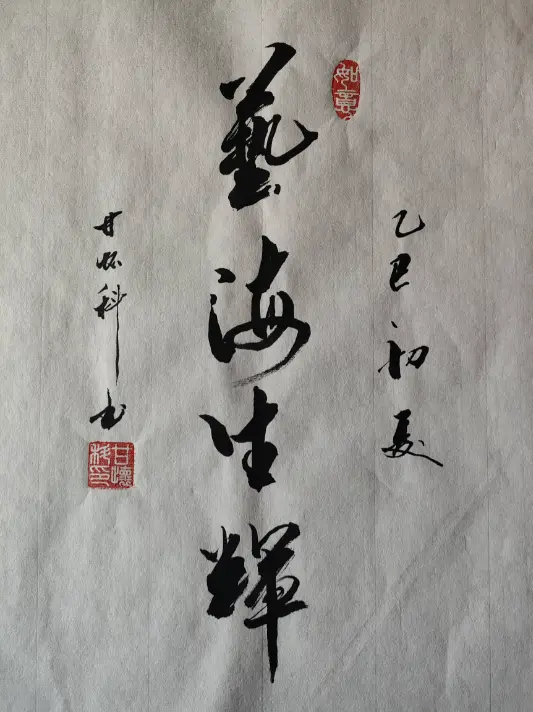 如意
乙巳初夏
藝海生輝
甘怀科书
甘懷科印